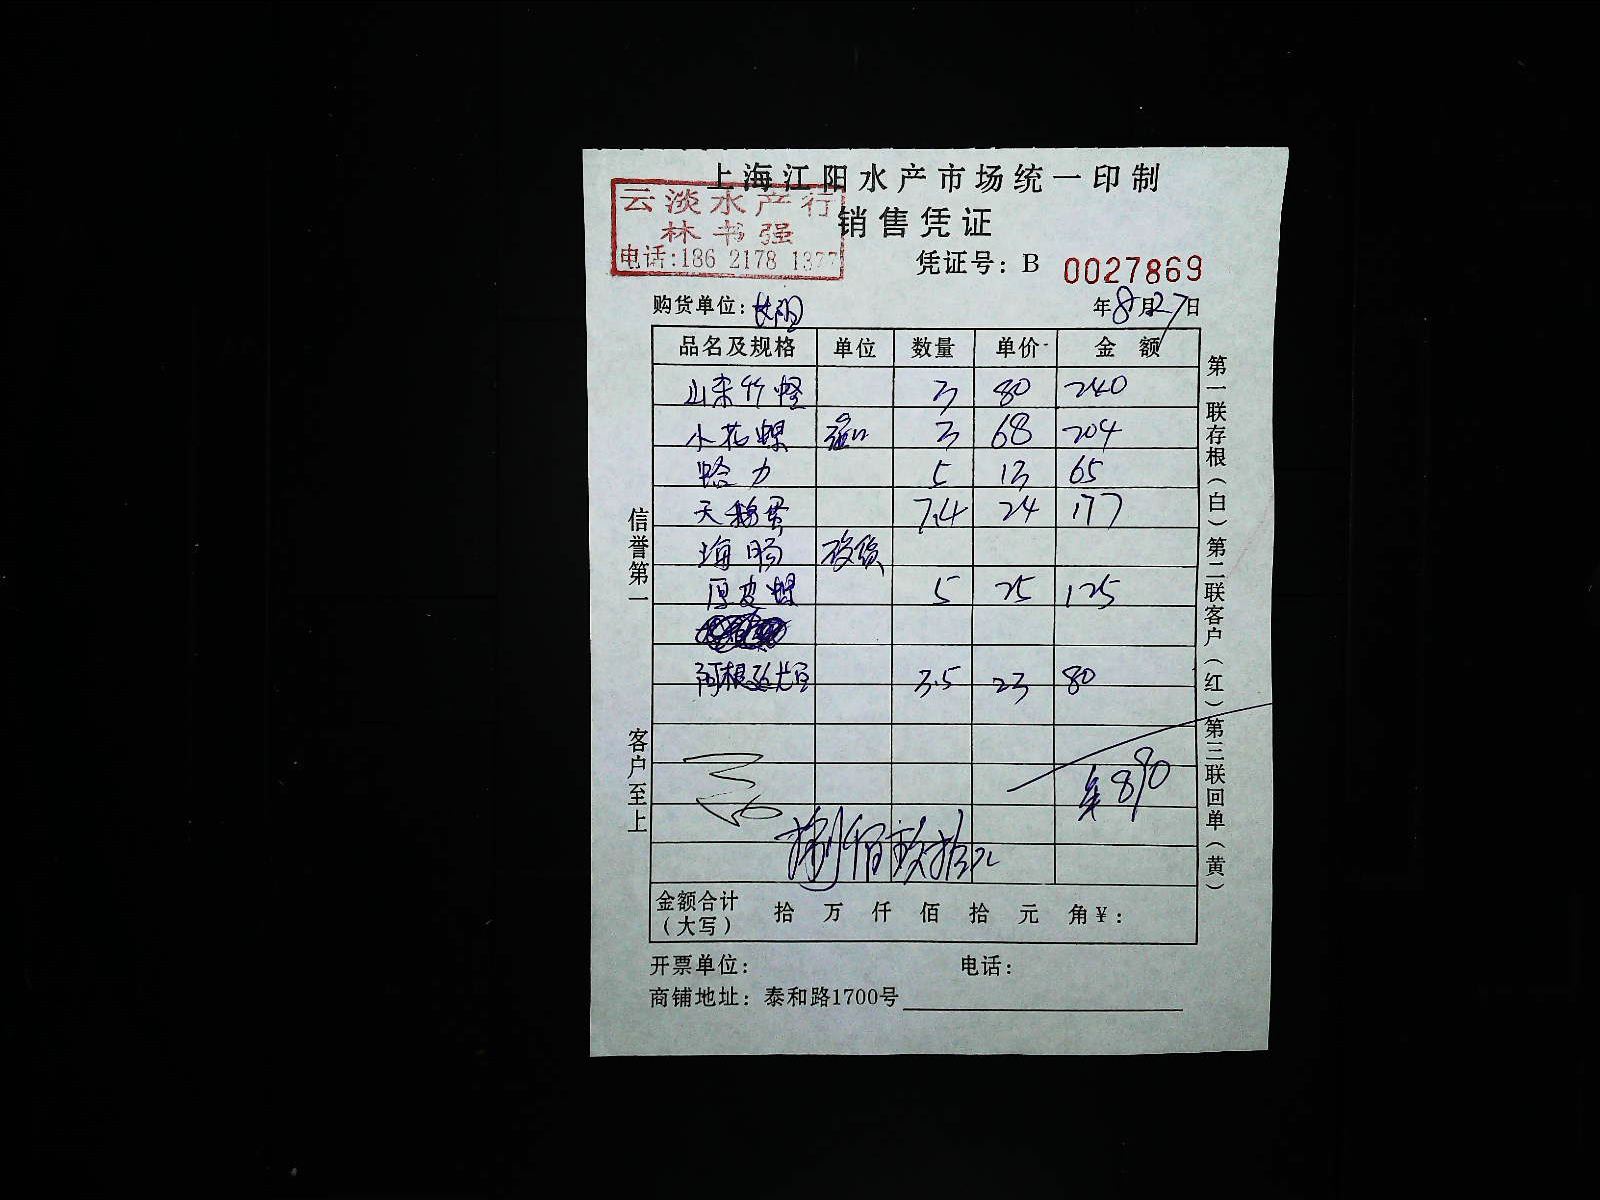 上海江阳水产市场统一印制
云淡水产行
林书强
电话:186 2178 1377
销售凭证
凭证号: B 0027869
购货单位: 长阳
年8月27日
品名及规格 单位 数量 单价 金额
山东竹蛏 3 80 240
小花螺 进口 3 68 204
哈力 5 13 65
天鹅蛋 7.4 24 177
海肠
厚皮 5 25 125
阿根廷 3.5 23 80
890
捌佰玖拾元
金额合计(大写) 拾 万 仟 佰 拾 元 角 ¥:
开票单位: 电话:
商铺地址: 泰和路1700号
信誉第一
客户至上
第一联存根(白)第二联客户(红)第三联回单(黄)